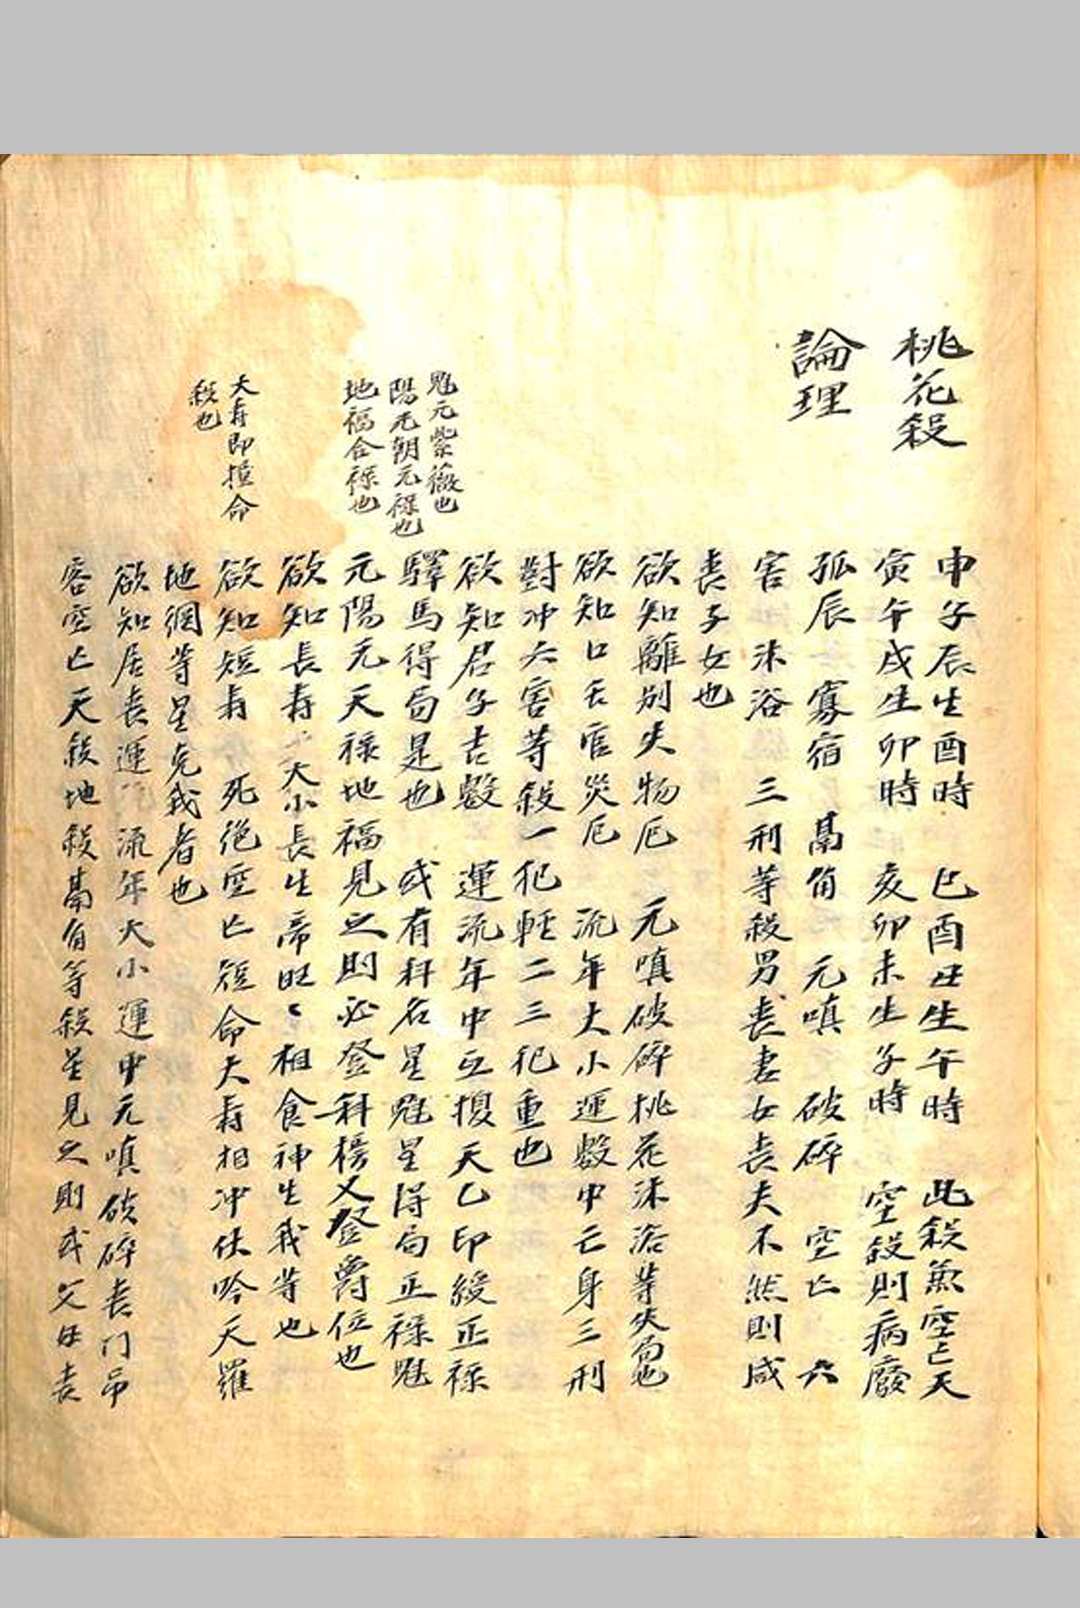 桃花殺
申子辰生酉時 巳酉丑生午時 此殺兼空亡天
寅午戌生卯時 亥卯未生子時 空殺則病廢
論理
孤辰 寡宿 鬲角 元嗔 破碎 空亡 六
害 沐浴 三刑等殺男喪妻女喪夫不然則咸
喪子女也
欲知離別失物厄 元嗔破碎桃花沐浴等失局也
欲知口舌官災厄 流年大小運數中亡身三刑
對冲六害等殺一犯輕二三犯重也
魁元紫薇也
陽元朝元祿也
地福合祿也
欲知君子吉數 運流年中互換天乙印綬正祿
驛馬得局是也 或有科名星魁星得局正祿魁
元陽元天祿地福見之則必登科榜又登爵位也
欲知長壽 大小長生帝旺〻相食神生我等也
夭壽即撞命
殺也
欲知短壽 死絶空亡短命夭壽相冲伏吟天羅
地網等星克我者也
欲知居喪運 流年大小運中元嗔破碎喪门吊
客空亡天殺地殺鬲角等殺星見之則或父母喪